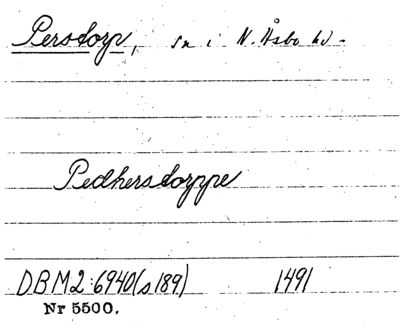 Perstorp, sn i N. Åsbo hd.
Pedherstorppe
DBM2:6940 (s 189) 1491
Nr 5500.